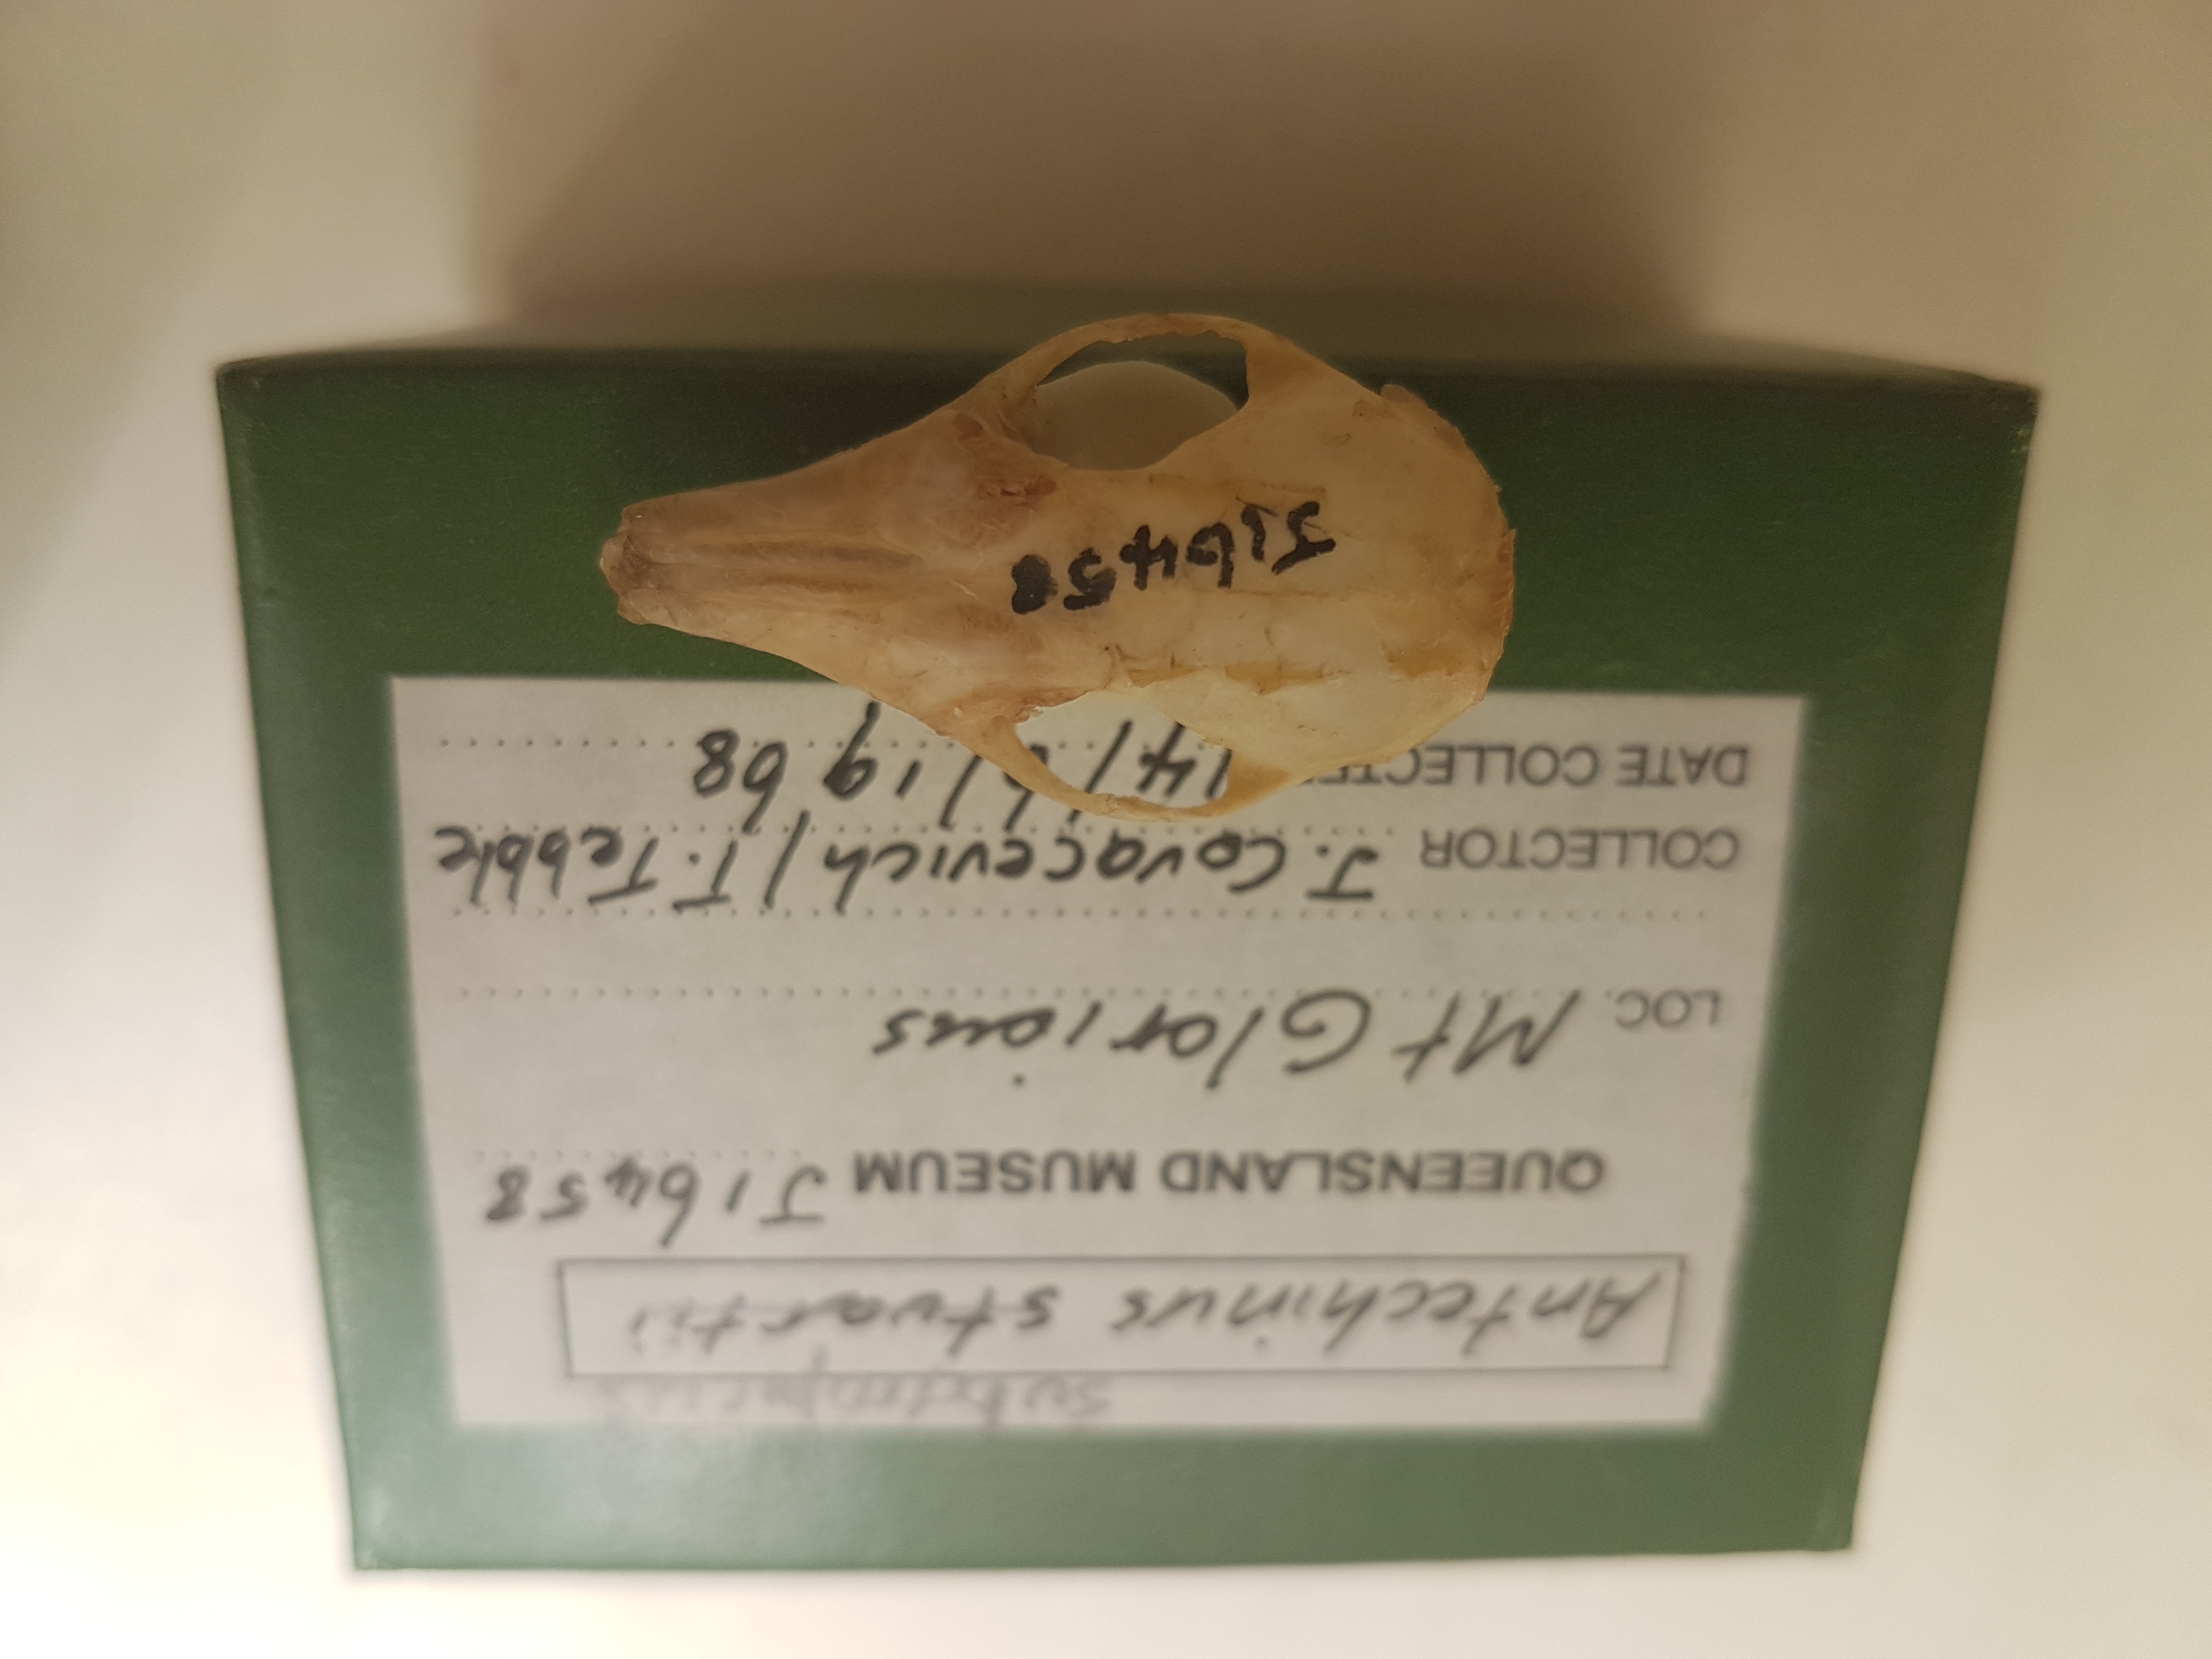 subtropicus
Antechinus stuartii
QUEENSLAND MUSEUM J16458
LOC. Mt Glorious
COLLECTOR J. Covacevich / T. Tebble
DATE COLLECTE 14/ /1968
J16458